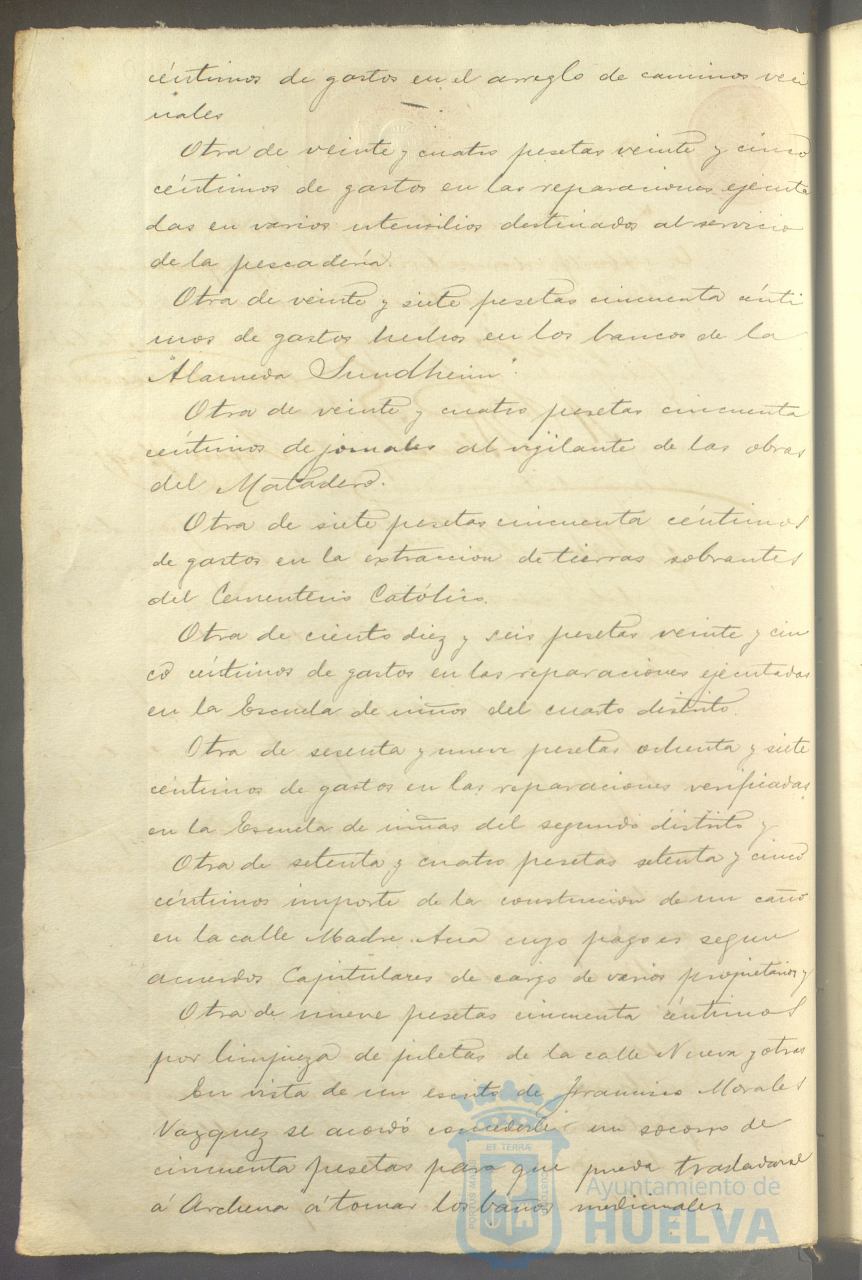 céntimos de gastos en el arreglo de caminos veci
nales
Otra de veinte y cuatro pesetas veinte y cinco
céntimos de gastos en las reparaciones ejecuta
das en varios utensilios destinados al servicio
de la pescadería.
Otra de veinte y siete pesetas cincuenta cénti
mos de gastos hechos en los bancos de la
"Alameda Sundheim".
Otra de veinte y cuatro pesetas cincuenta
céntimos de jornales al vigilante de las obras
del Matadero.
Otra de siete pesetas cincuenta céntimos
de gastos en la extraccion de tierras sobrantes
del Cementerio Católico.
Otra de ciento diez y seis pesetas veinte y cin
co céntimos de gastos en las reparaciones ejecutadas
en la Escuela de niños del cuarto distrito.
Otra de sesenta y nueve pesetas ochenta y siete
céntimos de gastos en las reparaciones verificadas
en la Escuela de niñas del segundo distrito y
Otra de setenta y cuatro pesetas setenta y cinco
céntimos importe de la construccion de un caño
en la calle Madre Ana cuyo pago es segun
acuerdos Capitulares de cargo de varios propietarios y
Otra de nueve pesetas cincuenta céntimos
por limpieza de piletas de la calle Nueva y otras
En vista de un escrito de Francisco Morales
Vazquez se acordó concederle un socorro de
cincuenta pesetas para que pueda trasladarse
á Archena á tomar los baños medicinales
ET TERRÆ
PORTUS MARIS
CUSTODIA
Ayuntamiento de
HUELVA